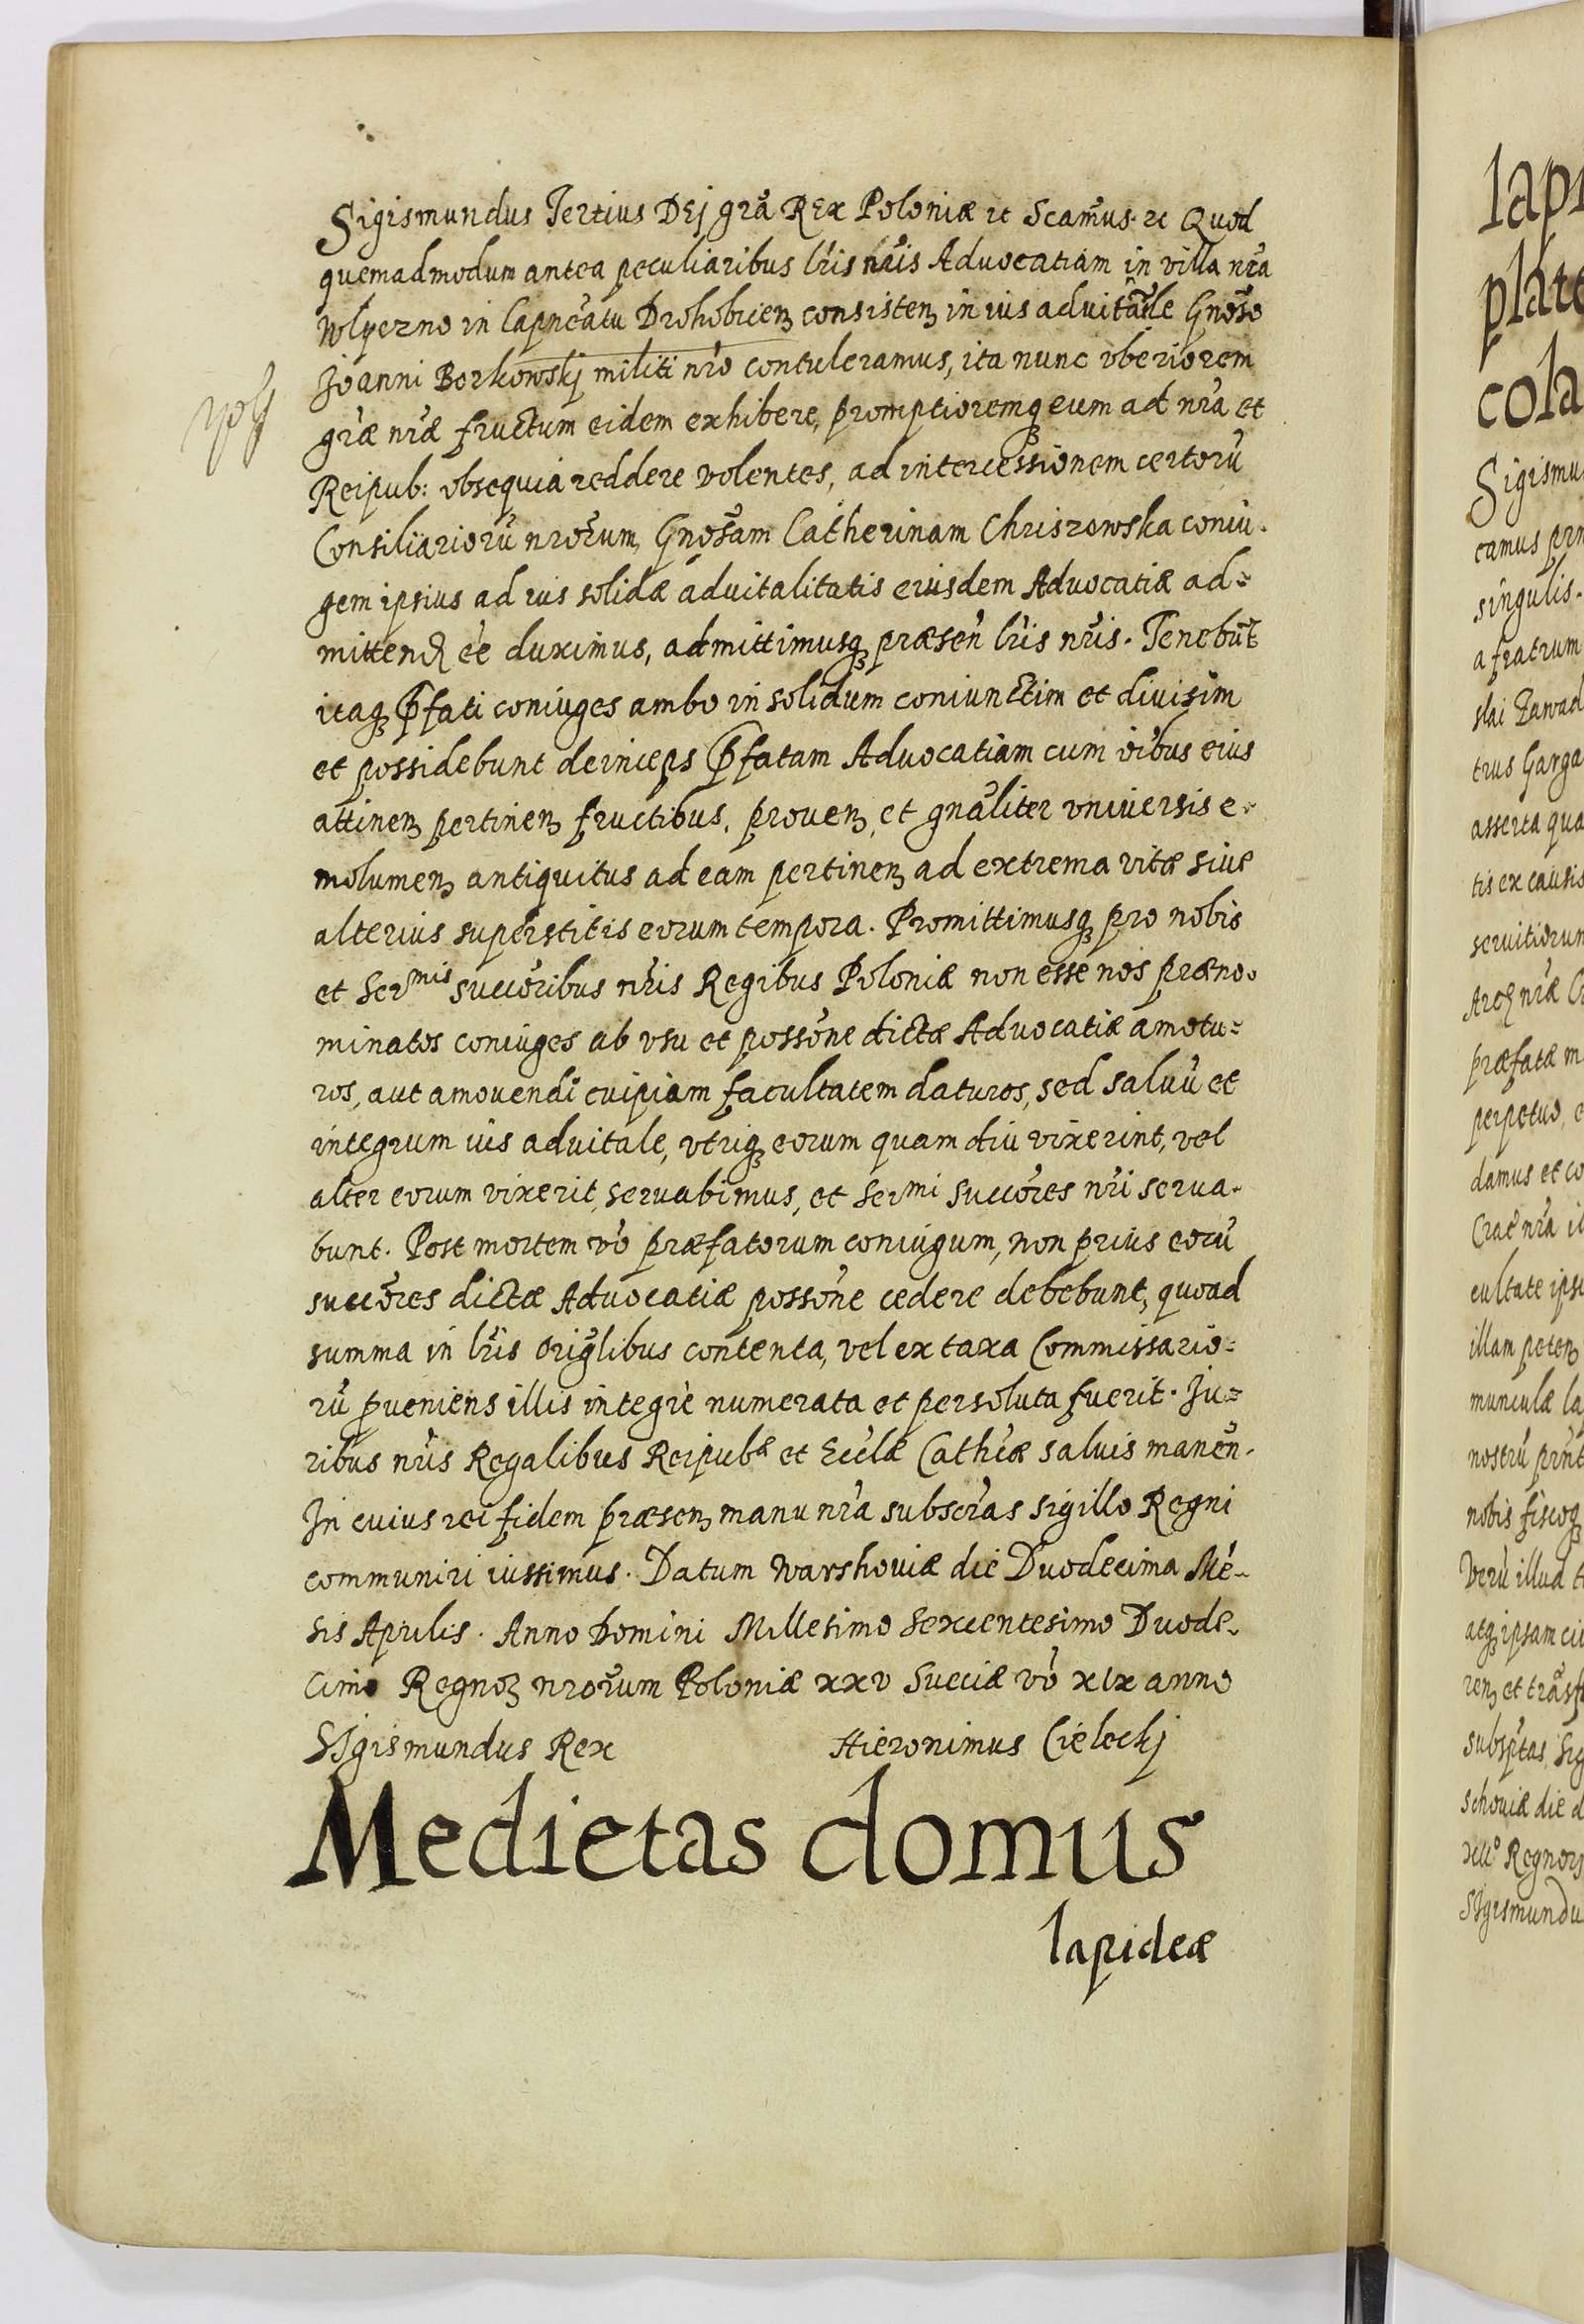 Sigismundus Tertius DEj grã REx Poloniæ etc Scamũs. etc Quod
quemadmodum antea peculiaribus lr̃is nr̃is Advocatiam in villa nr̃a
Wolyczno in Capnẽatu Drohobicen̄ consisten̄ in ius aduitãle Gnõso
Joanni Borkowskj militi nr̃o contuleramus, ita nunc vberiorem
gr̃æ nr̃æ fructum eidem exhibere, promptioremqꝫ eum ad nr̃a et
Reipub: obsequia reddere volentes, ad intercessionem certorũ
Consiliariorũ nrõrum, Gnosãm Catherinam Chriszowska coniu-
gem ipsius ad ius solidæ aduitalitatis eiusdem Advocatiæ ad=
mittenđ ẽe duximus, admittimusqꝫ præsen̄ lr̃is nr̃is. Tenebũt
itaqꝫ p̃fati coniuges ambo in solidum coniunctim et diuisim
et possidebunt deinceps p̃fatam Advocatiam cum oĩbus eius
attinen̄ pertinen̄ fructibus, prouen̄, et gnãliter vniuersis e-
molumen̄ antiquitus ad eam pertinen̄ ad extrema vitæ siue
alterius superstitis eorum tempora. Promittimusqꝫ pro nobis
et Serᵐⁱˢ succõribus nr̃is Regibus Poloniæ non esse nos præno-
minatos coniuges ab vsu et possõne dictæ Advocatiæ amotu=
ros, aut amouendi cuipiam facultatem daturos, sed saluũ et
integrum ius aduitale, vtriqꝫ eorum quam diu vixerint, vel
alter eorum vixerit, seruabimus, et Serᵐⁱ succõres nr̃i serua-
bunt. Post mortem võ præfatorum coniugum, non prius eorũ
succõres dictæ Advocatiæ possõne cedere debebunt, quoad
summa in lr̃is origl̃ibus contenta, vel ex taxa Commissario=
rũ ꝓueniens illis integrè numerata et persoluta fuerit. Ju=
ribus nr̃is Regalibus Reipubᵉ et Eccl̃æ Cathcæ saluis manen̄.
In cuius rei fidem præsen̄ manu nr̃a subscr̃as sigillo Regni
communiri iussimus. Datum Warshouiæ die Duodecima Mẽ-
sis Aprilis. Anno Domini Millesimo Sexcentesimo Duode-
cimo Regnoꝝ nrõrum Poloniæ xxv Sueciæ võ xix anno
SIgismundus Rex Hieronimus Cieleckj
Medietas domus
lapideæ
lapi
plate
cola
Sigismu
camus prn
singulis.
a fratrum
slai Zawad
trus Garga
asserta qua
tis ex causis
seruitiorum
præfatæ m
perpetuo, e
damus et co
Crac̃ nr̃a il
cultate ipsi
illam peten̄
munculæ la
nostrũ prñt
nobis fiscoqꝫ
Verũ illud t
atqꝫ ipsam ciu
ren̄ et trãsf
subsptas, Sig
schouiæ die d
Regnorꝫ
SIgismundu